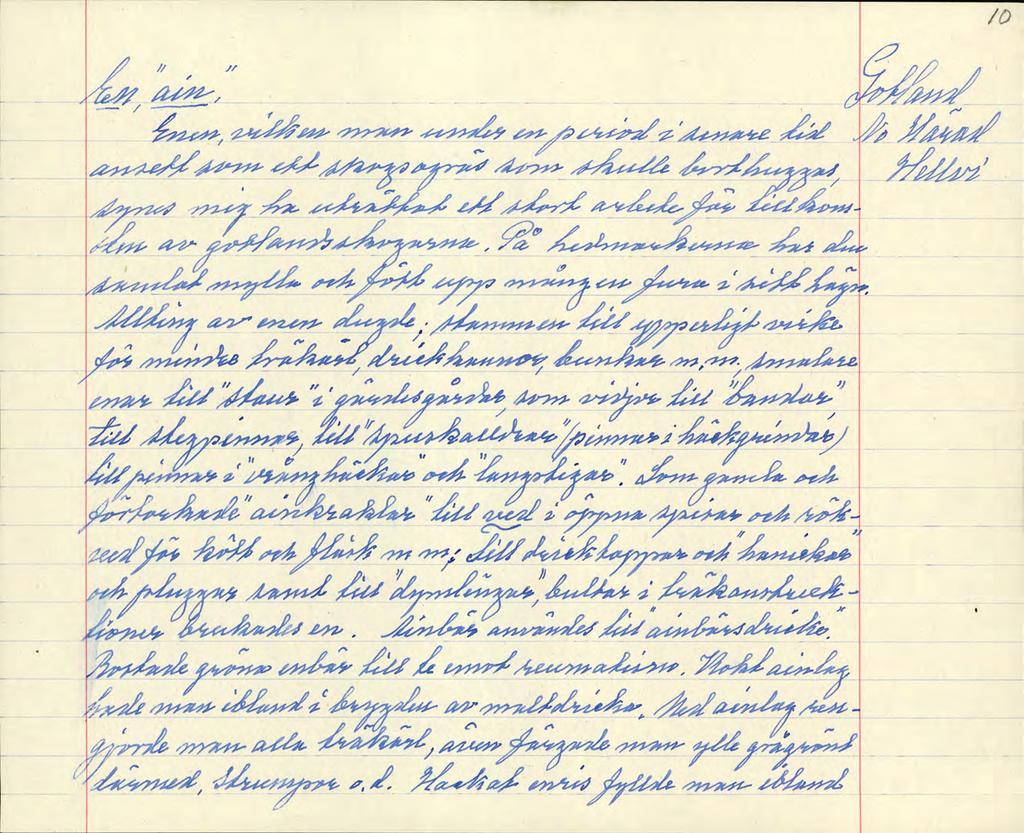 10
En, "ain".
Gotland
No Härad
Hellvi
Enen, vilken man under en period i senare tid
ansett som ett skogsogräs som skulle borthuggas,
synes mig ha uträttat ett stort arbete för tillkom-
sten av gotlandsskogarna. På hedmarkerna har den
samlat mylla och fött upp mången fura i sitt hägn.
Allting av enen dugde; stammen till ypperligt virke
för mindre träkärl, drickkannor, bunkar m.m., smalare
enar till "staur" i gärdesgårdar, som vidjor till "bandar",
till stegpinnar, till "spuskalldrar" (pinnar i häckgrindar)
till pinnar i "vrånghäckar" och "langstigar". Som gamla och
förtorkade "ainkraklar" till ved i öppna spisar och rök-
ved för kött och fläsk m m; Till dricktappar och "hanickar"
och pluggar samt till "dymlingar", bultar i träkonstruk-
tioner brukades en. Ainbär användes till "ainbärsdricke".
Rostade gröna enbär till te emot reumatism. Kokt ainlag
hade man ibland i brygden av maltdricka. Med ainlag ren-
gjorde man alla träkärl, även färgade man ylle grågrönt
därmed, strumpor o.d. Hackat enris fyllde man ibland